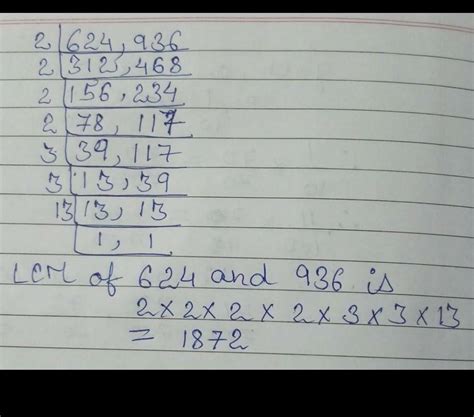 2 | 624, 936
2 | 312, 468
2 | 156, 234
2 | 78, 117
3 | 39, 117
3 | 13, 39
13 | 13, 13
1, 1
LCM of 624 and 936 is
2 × 2 × 2 × 2 × 3 × 3 × 13
= 1872